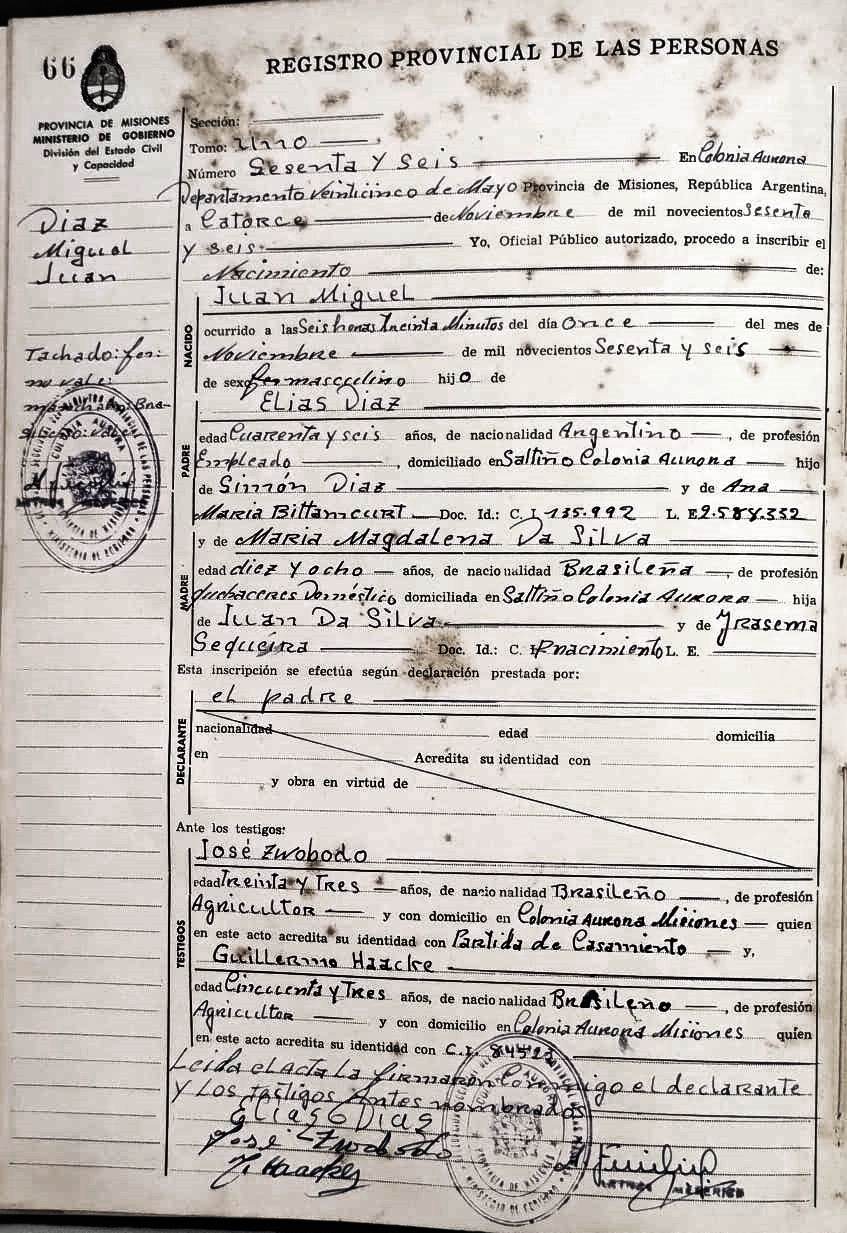 66
REGISTRO PROVINCIAL DE LAS PERSONAS
PROVINCIA DE MISIONES
MINISTERIO DE GOBIERNO
División del Estado Civil
y Capacidad
Diaz
Miguel
Juan
Tachado: fe
no vale:
Sección:
Tomo: Uno
Número Sesenta y seis En Colonia Aurora
Departamento Veinticinco de Mayo Provincia de Misiones, República Argentina,
a Catorce de Noviembre de mil novecientos Sesenta
y seis Yo, Oficial Público autorizado, procedo a inscribir el
Nacimiento de:
NACIDO
Juan Miguel
ocurrido a las Seis horas Treinta Minutos del día Once del mes de
Noviembre de mil novecientos Sesenta y seis
de sexo fe masculino hijo de
PADRE
ELIAS DIAZ
edad Cuarenta y seis años, de nacionalidad Argentino, de profesión
Empleado, domiciliado en Saltiño Colonia Aurora hijo
de Simón Diaz y de Ana
Maria Bittancurt Doc. Id.: C. I 135.992 L. E 2.584.332
y de Maria Magdalena Da Silva
MADRE
edad diez y ocho años, de nacionalidad Brasileña, de profesión
Quehaceres Doméstico domiciliada en Saltiño Colonia Aurora hija
de Juan Da Silva y de Yrasema
Sequeira Doc. Id.: C. I nacimiento L. E.
Esta inscripción se efectúa según declaración prestada por:
el padre
DECLARANTE
nacionalidad edad domicilia
en Acredita su identidad con
y obra en virtud de
Ante los testigos:
TESTIGOS
José Zwobodo
edad Treinta y Tres años, de nacionalidad Brasileño, de profesión
Agricultor y con domicilio en Colonia Aurora Misiones quien
en este acto acredita su identidad con Partida de Casamiento y,
Guillermo Haacke
edad Cincuenta y Tres años, de nacionalidad Brasileño, de profesión
Agricultor y con domicilio en Colonia Aurora Misiones quien
en este acto acredita su identidad con C.I.
Leida el acta la firmaron Conmigo el declarante
y los testigos Antes nombrados
Elias Dias
José Zwobodo
Haacke